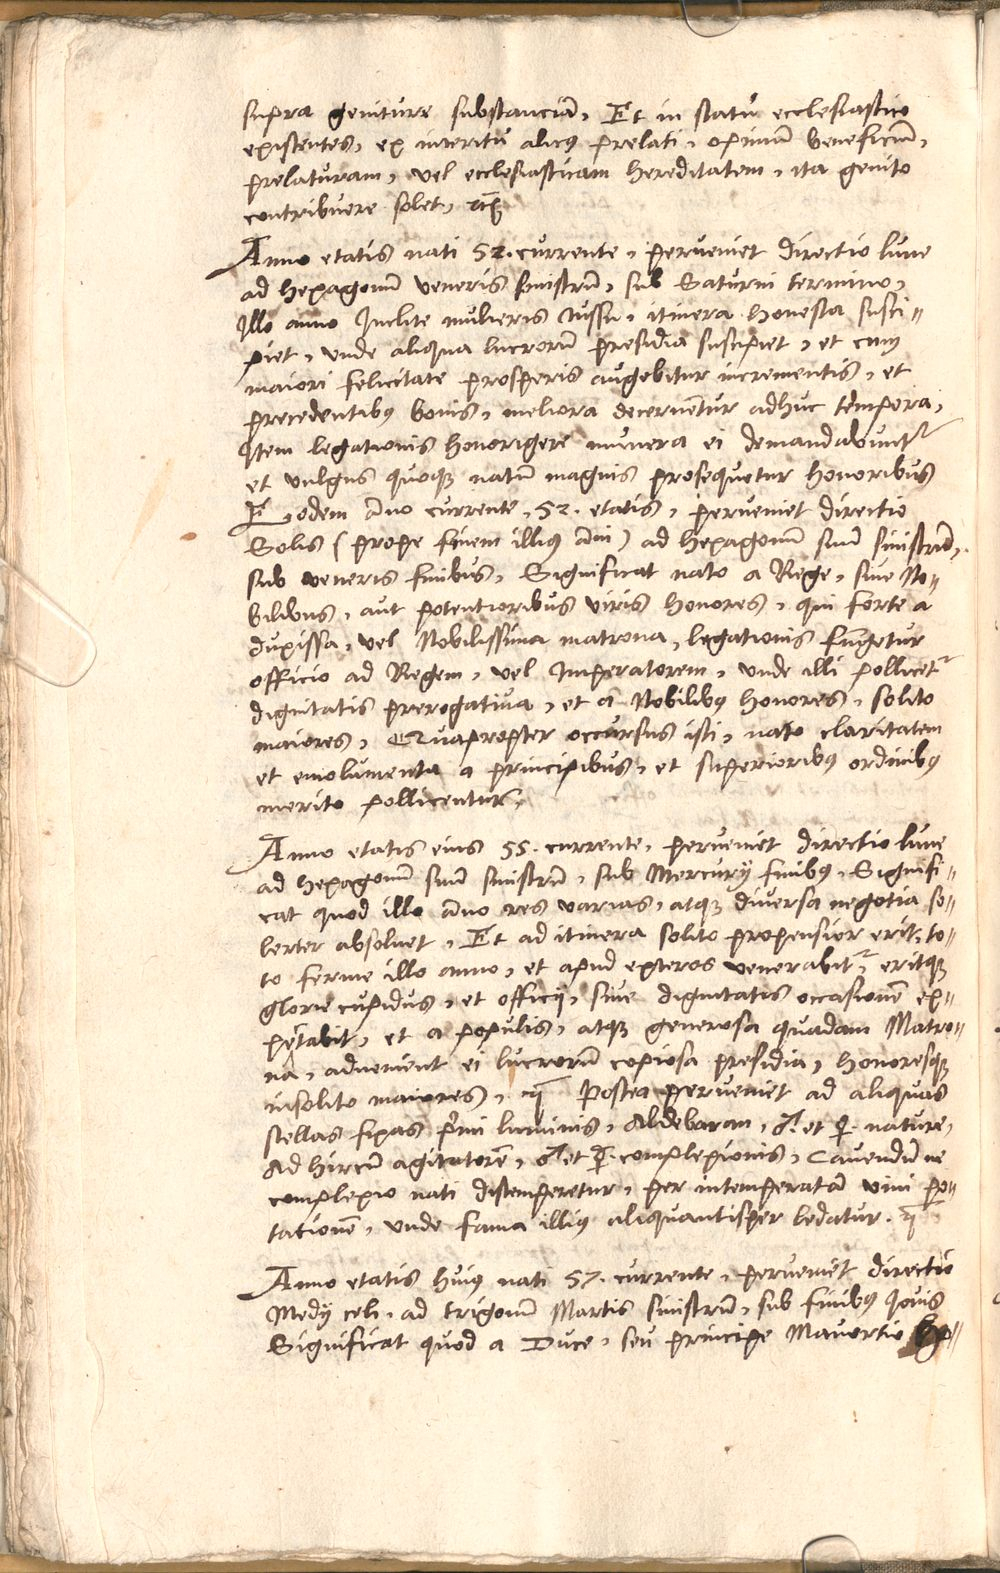 supra geniture substanciã, Et in statu ecclesiastico
existentes, ex interitu alicꝰ prelati, opimũ beneficiũ,
prelaturam, vel ecclesiasticam hereditatem, ita genito
contribuere solet,
Anno etatis nati 52. currente, perveniet directio lune
ad hexagonũ veneris sinistrũ, sub Saturni termino,
Illo anno Inclite mulieris Iussu, itinera honesta susci=
piet, unde aliqua lucrorũ presidia suscipiet, et cuiꝰ
maiori felicitate prosperis augebitur incrementis, et
precedentibꝰ bonis, meliora decernẽtur adhuc tempora,
Item legationis honorigere munera ei demandabunt᷑
et vulgus quoqꝫ natũ magnis prosequetur honoribus
Eodem ãno currente, 52. etatis, perveniet directio
Solis (prope finem illiꝰ ãni) ad hexagonũ suũ sinistrũ,
sub veneris finibus, Significat nato a Rege, sive No=
bilibus, aut potentioribus viris honores, qui forte a
duxissa, vel Nobilissima matrona, legationis fũgetur
officio ad Regem, vel Imperatorem, unde illi pollicet᷑
dignitatis prerogativa, et a Nobilibꝰ honores, solito
maiores, Quapropter occursus isti, nato claritatem
et emolumenta a principibus, et superioribꝰ ordinibꝰ
merito pollicentur,
Anno etatis eius 55. currente, perveniet directio lune
ad hexagonũ suũ sinistrũ, sub Mercurij finibꝰ, Signifi=
cat quod illo ãno res varias, atqꝫ diversa negotia so=
lerter absolvet, Et ad itinera solito propensior erit, to=
to ferme illo anno, et apud exteros venerabit᷑, eritqꝫ
glorie cupidus, et officij, sive dignitatis occasionẽ ex=
pectabit, et a populis, atqꝫ generosa quadam Matro=
na, advenient ei lucrorũ copiosa presidia, honoresqꝫ
insolito maiores, Postea perveniet ad aliquas
stellas fixas primi luminis, Aldebaran, ♂. et ☿. nature,
Ad hircũ agitatorẽ, ♂ et ☿. complexionis, Cavendũ ne
complexio nati distemperetur, per intemperatã vini po=
tationẽ, unde fama illiꝰ aliquantisper ledatur.
Anno etatis huiꝰ nati 57. currente, perveniet directio
Medij celi, ad trigonũ Martis sinistrũ, sub finibꝰ Iovis
Significat quod a Duce, seu principe Mavortio